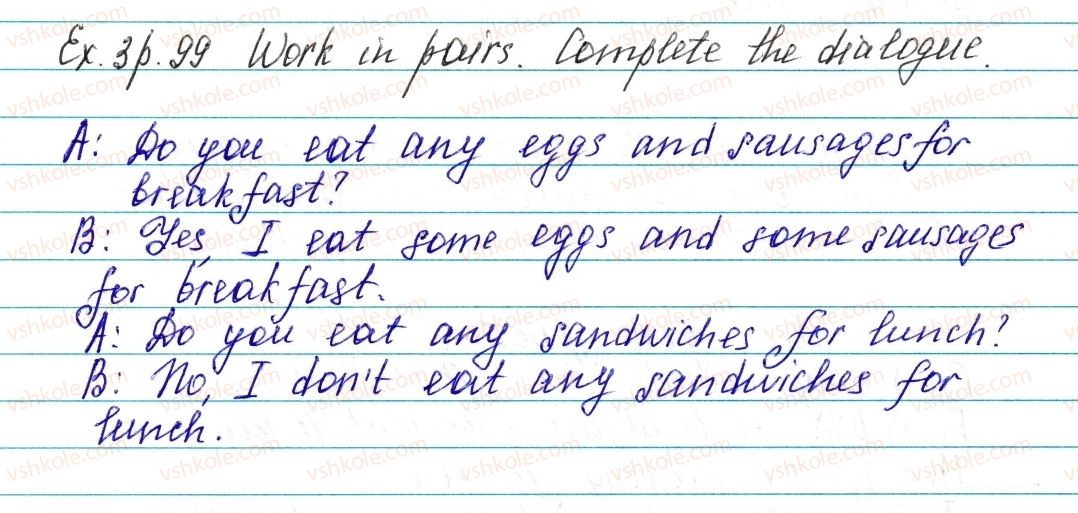 Ex. 3 p. 99 Work in pairs. Complete the dialogue.
A: Do you eat any eggs and sausages for
breakfast?
B: Yes, I eat some eggs and some sausages
for breakfast.
A: Do you eat any sandwiches for lunch?
B: No, I don't eat any sandwiches for
lunch.